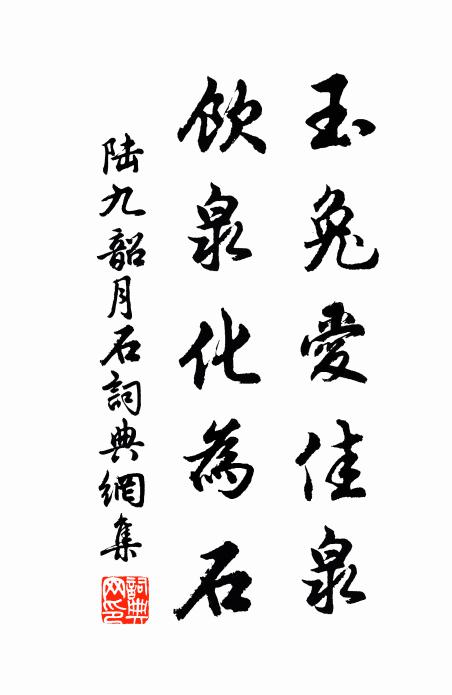 玉兔愛佳泉
飲泉化為石
陸九韶月石詞典網集
詞典網印